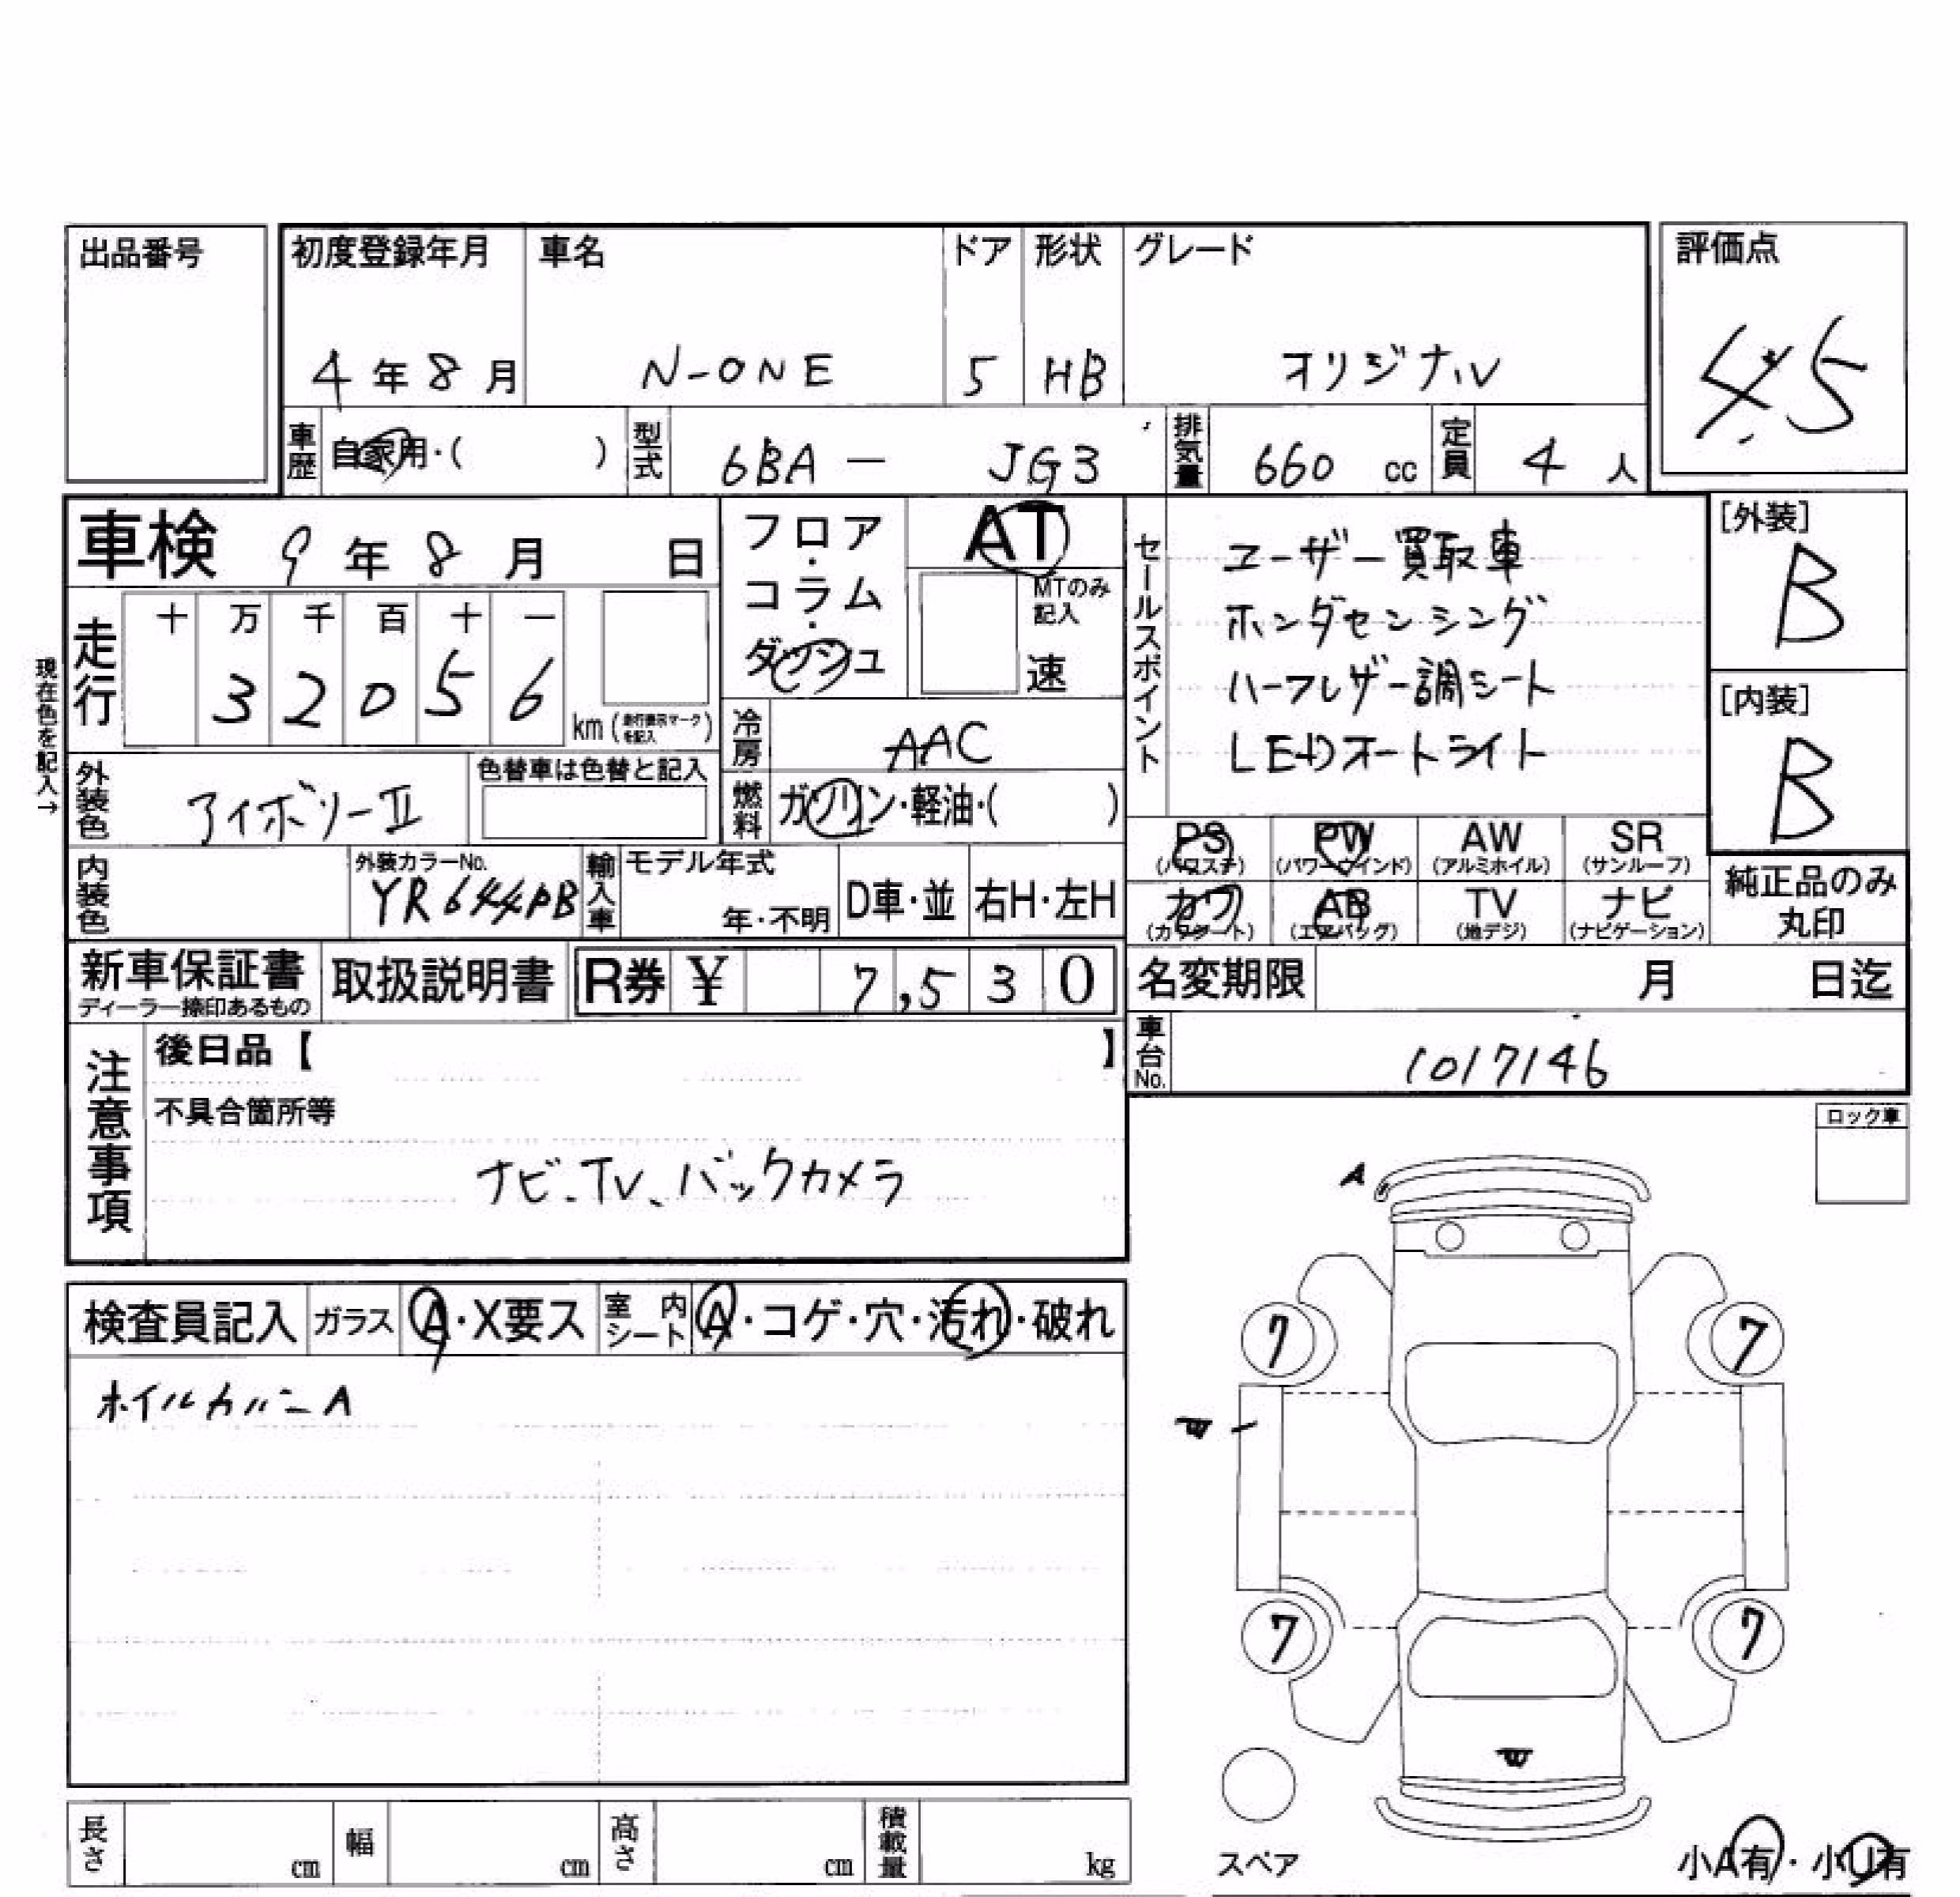 出品番号
初度登録年月 車名 ドア 形状 グレード 評価点
4年8月 N-ONE 5 HB オリジナル 4.5
車歴 自家用・( ) 型式 6BA - JG3 排気量 660 cc 定員 4 人
車検 9年8月 日
フロア・コラム・ダッシュ
AT
MTのみ記入
速
セールスポイント
ユーザー買取車
ホンダセンシング
ハーフレザー調シート
LEDオートライト
[外装]
B
[内装]
B
現在色を記入→
走行 十 万 千 百 十 一
3 2 0 5 6 km (走行表示マークを記入)
冷房 AAC
外装色 アイボリーII 色替車は色替と記入
燃料 ガソリン・軽油・( )
内装色 外装カラーNo. YR644PB 輸入車 モデル年式 年・不明 D車・並 右H・左H
PS (パワステ) PW (パワーウインド) AW (アルミホイル) SR (サンルーフ)
カワ (カワシート) AB (エアバッグ) TV (地デジ) ナビ (ナビゲーション)
純正品のみ丸印
新車保証書 ディーラー捺印あるもの 取扱説明書 R券 ¥ 7,530
名変期限 月 日迄
車台No. 1017146
注意事項 後日品【 】
不具合箇所等
ナビ、TV、バックカメラ
ロック車
A
検査員記入 ガラス A・X要ス 室内シート A・コゲ・穴・汚れ・破れ
ホイルカバーA
7 7
7 7
長さ cm 幅 cm 高さ cm 積載量 kg
スペア
小A有・小U有